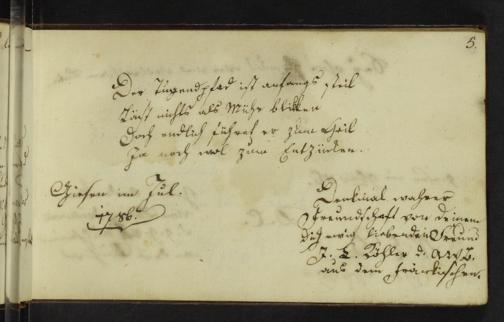 5.
Der Tugendpfad ist anfangs steil
Läst nichts als Mühe blicken
Doch endlich führet er zum Heil
Ja noch wol zum Entzücken.
Giesen im Jul.
1786.
Denkmal wahrer
Freundschaft von Deinem
Dich ewig liebenden Freund
J. L. Köhler d.
aus dem Fränkischen.